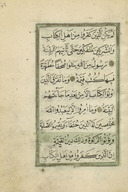 لم يكن الذين كفروا من اهل الكتاب
والمشركين منفكين حتى تأتيهم البينة
رسول من الله يتلوا صحفا مطهرة
فيها كتب قيمة وما تفرق الذين
اوتوا الكتاب الا من بعد ما جاءتهم
البينة وما امروا الا ليعبدوا الله
مخلصين له الدين حنفاء ويقيموا الصلوة
ويؤتوا الزكوة وذلك دين القيمة
ان الذين كفروا من اهل الكتاب